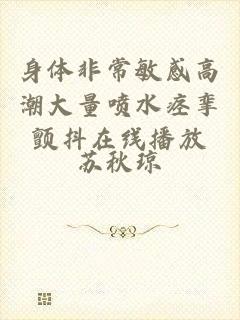 身体非常敏感高
潮大量喷水痉挛
颤抖在线播放
苏秋琼